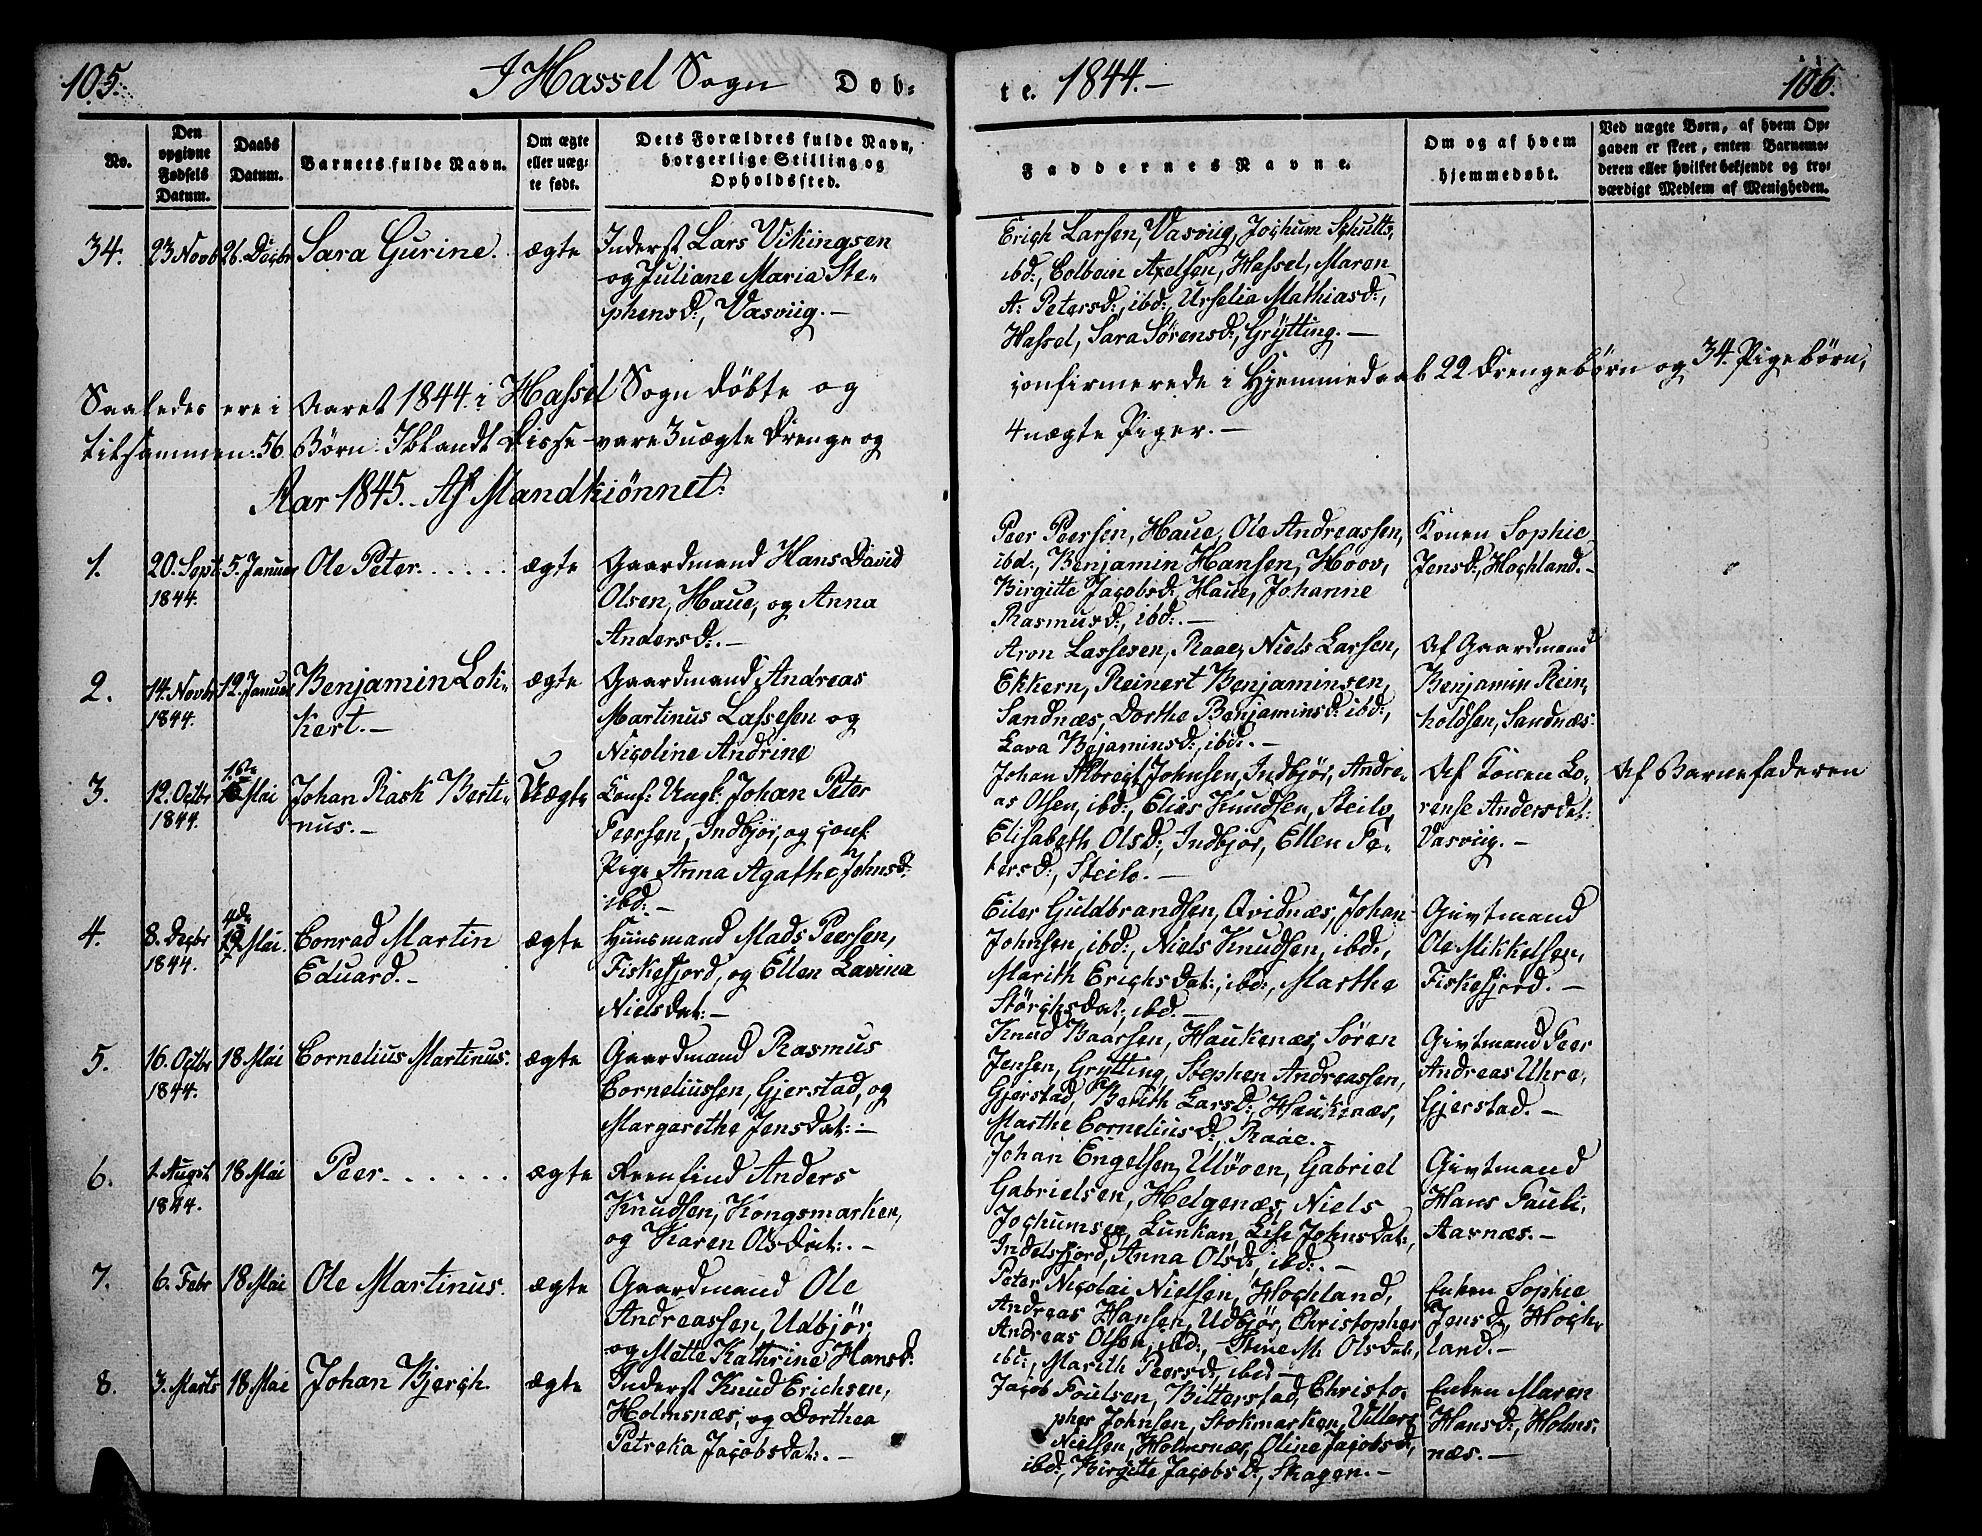 105.
I Hassel Sogn Døb-
te. 1844.-
106.
No.
Den opgivne Fødsels Datum.
Daabs Datum.
Barnets fulde Navn.
Om ægte eller uæg-te født.
Dets Forældres fulde Navn, borgerlige Stilling og Opholdssted.
Faddernes Navne.
Om og af hvem hjemmedøbt.
Ved uægte Børn, af hvem Op-
gaven er skeet, enten Barnemo-
deren eller hvilket bekjendt og tro-
værdigt Medlem af Menigheden.
34. 23 Novb 26. Decbr Sara Gurine. ægte
Inderst Lars Vikingsen
og Juliane Maria Ste-
phensd:, Vasviig.-
Erich Larsen, Vasviig, Jochum Schutts,
ibd:, Colbein Axelsen, Hassel, Maren
A: Petersd:, ibd:, Urselia Mathiasd:,
Hassel, Sara Sørensd:, Grytting.-
Saaledes ere i Aaret 1844 i Hassel Sogn døbte og
confirmerede i Hjemmedaab 22 Drengebørn og 34 Pigebørn,
tilsammen 56 Børn. Iblandt Disse vare 3 uægte Drenge og
4 uægte Piger.-
Aar 1845. Af Mandkiønnet:
1. 20. Sept 5. Januar Ole Peter...... ægte
1844.
Gaardmand Hans David
Olsen, Haue, og Anna
Andersd:.-
Peer Peersen, Haue, Ole Andreassen,
ibd:, Benjamin Hansen, Hoov,
Birgitte Jacobsd:, Haue, Johanne
Rasmusd:, ibd:.-
Konen Sophie
Jensd:, Hochland.-
2. 14. Novbr 12. Januar Benjamin Loti- ægte
1844. kert.-
Gaardmand Andreas
Martinus Lassesen og
Nicoline Andrine
Aron Lassesen, Raae, Niels Larsen,
Ekkern, Reinert Benjaminsen,
Sandnæs, Dorthe Benjaminsd: ibd:,
Lava Bejaminsd:, ibd:.-
Af Gaardmand
Benjamin Rein-
holdsen, Sandnæs.
3. 12. Octbr Mai Johan Rask Berti- Uægte
1844. nus.-
Conf: Ungk: Johan Peter
Peersen, Indbjør, og conf:
Pige Anna Agathe Johnsd:
ibd:-
Johan Albregt Johnsen, Indbjør, Andre-
as Olsen, ibd:, Elias Knudsen, Steilo,
Elisabeth Olsd:, Indbjør, Ellen Pe-
tersd:, Steilo.-
Af Konen Lo-
rense Andersdat:
Vasviig.-
Af Barnefaderen
4. 8. Decbr Mai. Conrad Martin ægte
1844. Eduard.-
Huusmand Mads Peersen,
Fiskefjord, og Ellen Lavina
Nielsdat:-
Eiler Guldbrandsen, Qvidnæs, Johan
Johnsen, ibd:, Niels Knudsen, ibd:,
Marith Erichsdat:, ibd:, Marthe
Størchsdat:, ibd.-
Givtmand
Ole Mikkelsen,
Fiskefjord.-
5. 16. Octbr 18 Mai Cornelius Martinus. ægte
1844.
Gaardmand Rasmus
Corneliussen, Gjerstad, og
Margarethe Jensdat:-
Knud Baarsen, Haukenæs, Søren
Jensen, Grytting, Stephen Andreassen,
Gjerstad, Berith Larsd:, Haukenæs,
Marthe Corneliusd:, Raae.-
Givtmand Peer
Andreas Uhre,
Gjerstad.-
6. 1. Augst 18 Mai Peer...... ægte
1844.
Anders
Knudsen, Kongsmarken,
og Karen Olsdat:.-
Johan Engelsen, Uløen, Gabriel
Gabrielsen, Helgenæs, Niels
Jochumsen, Lunkan, Lise Johnsdat:,
Indelsfjord, Anna Olsd:, ibd:.-
Givtmand
Hans Pauli,
Aarnæs.-
7. 6. Febr 18 Mai Ole Martinus. ægte
Gaardmand Ole
Andreassen, Udbjør,
og Mette Kathrine Hansd:
Peter Nicolai Nielsen, Hochland,
Andreas Hansen, Udbjør, Christopher
Andreas Olsen, ibd:, Stine M. Olsdat:,
ibd:, Marith Peersd:, ibd.-
Enken Sophie
Jensd:, Hoch-
land.-
8. 3. Marts 18 Mai Johan Bjergh ægte
Inderst Knud Erichsen,
Holmsnæs, og Dorthea
Petreka Jacobsdat:.-
Jacob Poulsen, Bitterstad, Christo-
pher Johnsen, Stokmarken, Villers
Nielsen, Holmsnæs, Oline Jacobsd:,
ibd:, Birgitte Jacobsd:, Skagen.-
Enken Maren
Hansd:, Holms-
næs.-